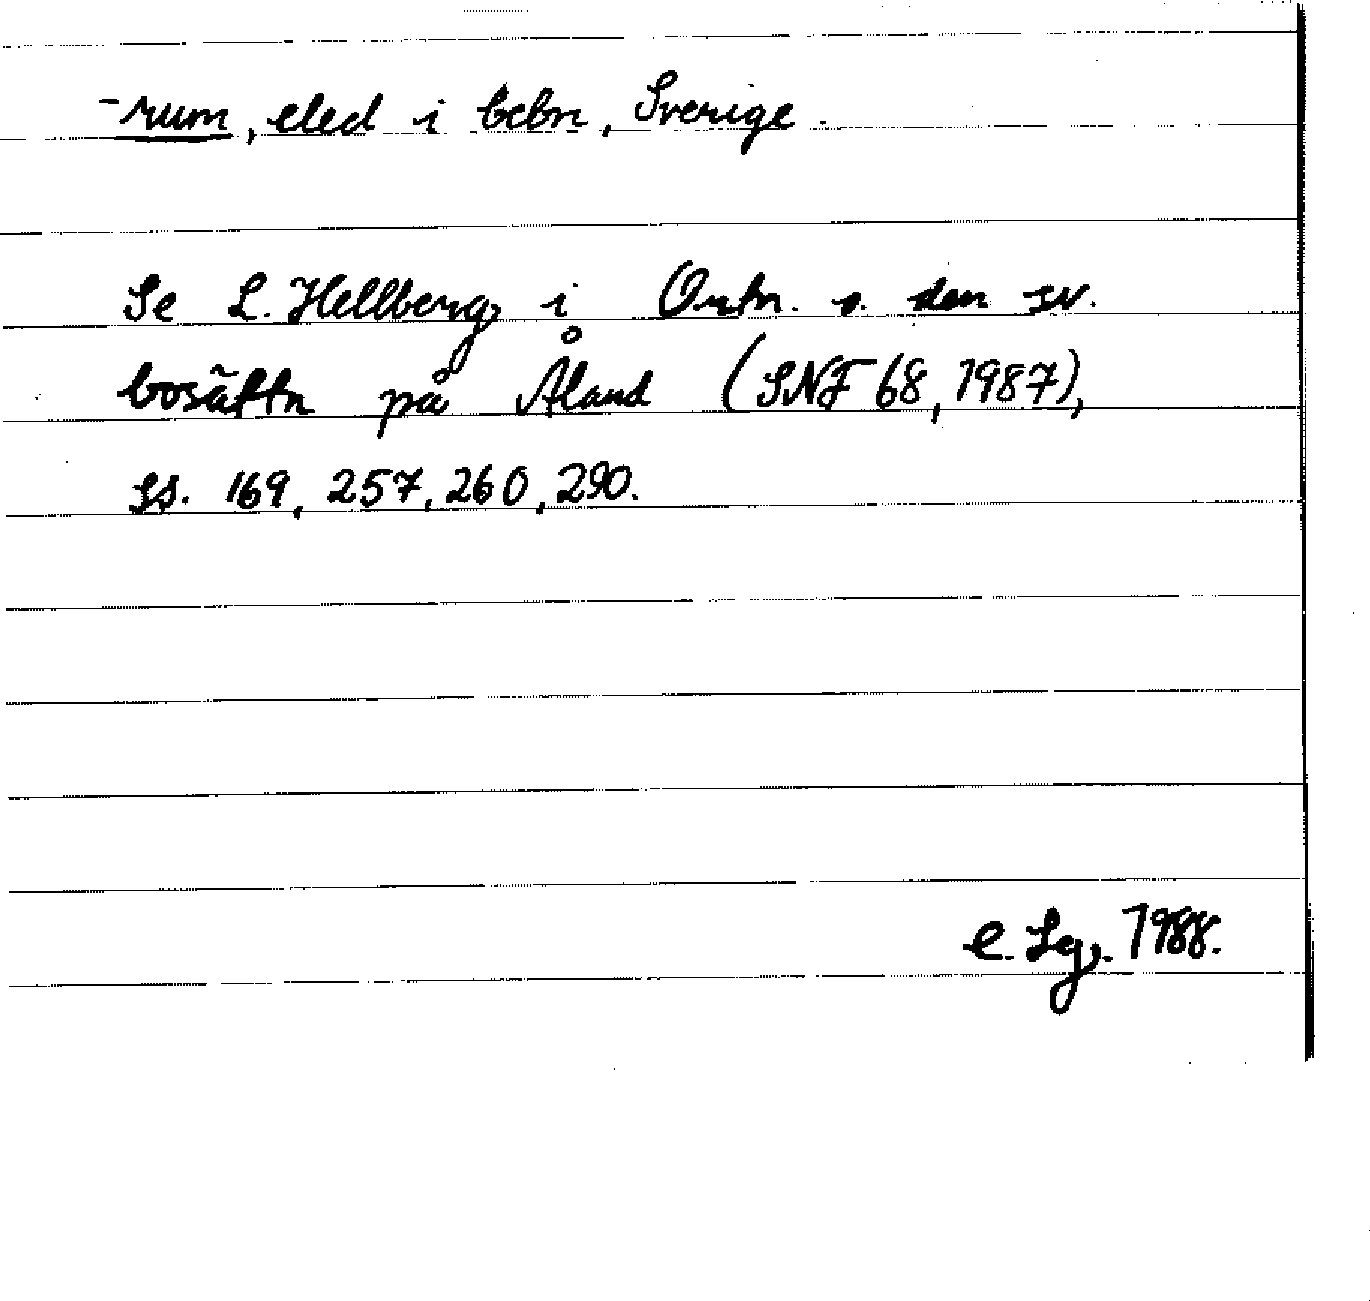 -rum, eled i bebn, Sverige.
Se L. Hellberg i Ortn. o. den sv.
bosättn på Åland (SNF 68, 1987),
ss. 169, 257, 260, 290.
e. Lg. 1988.